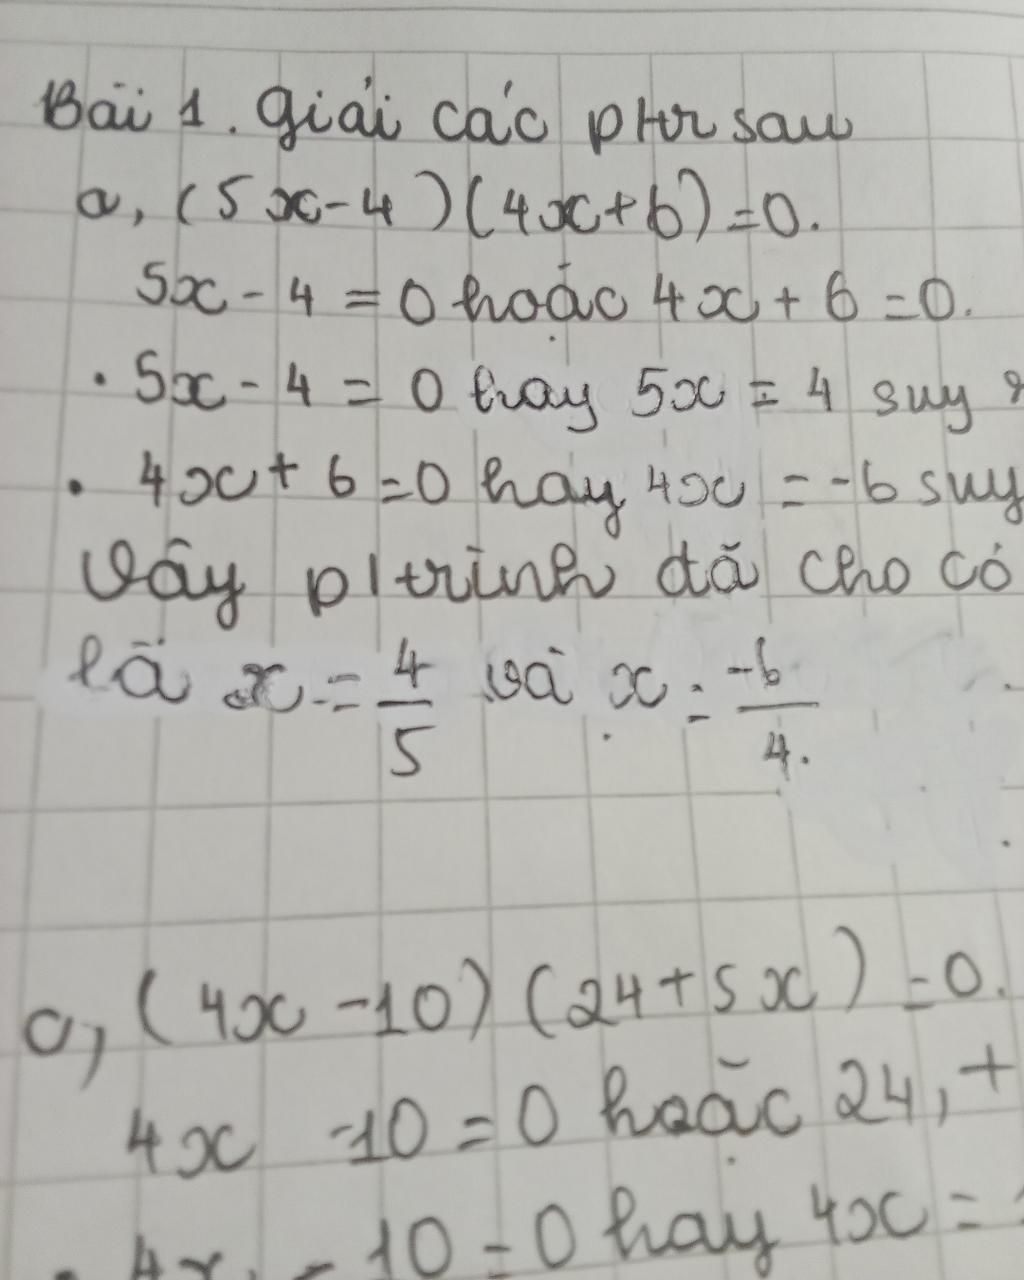 Bài 1. Giải các ptr sau
a, (5x-4)(4x+6)=0.
5x-4=0 hoặc 4x+6=0.
• 5x-4=0 hay 5x=4 suy
• 4x+6=0 hay 4x=-6 suy
Vậy ptrình đã cho có
là x=4/5 và x=-6/4.
c, (4x-10)(24+5x)=0.
4x-10=0 hoặc 24+
• 4x-10=0 hay 4x=